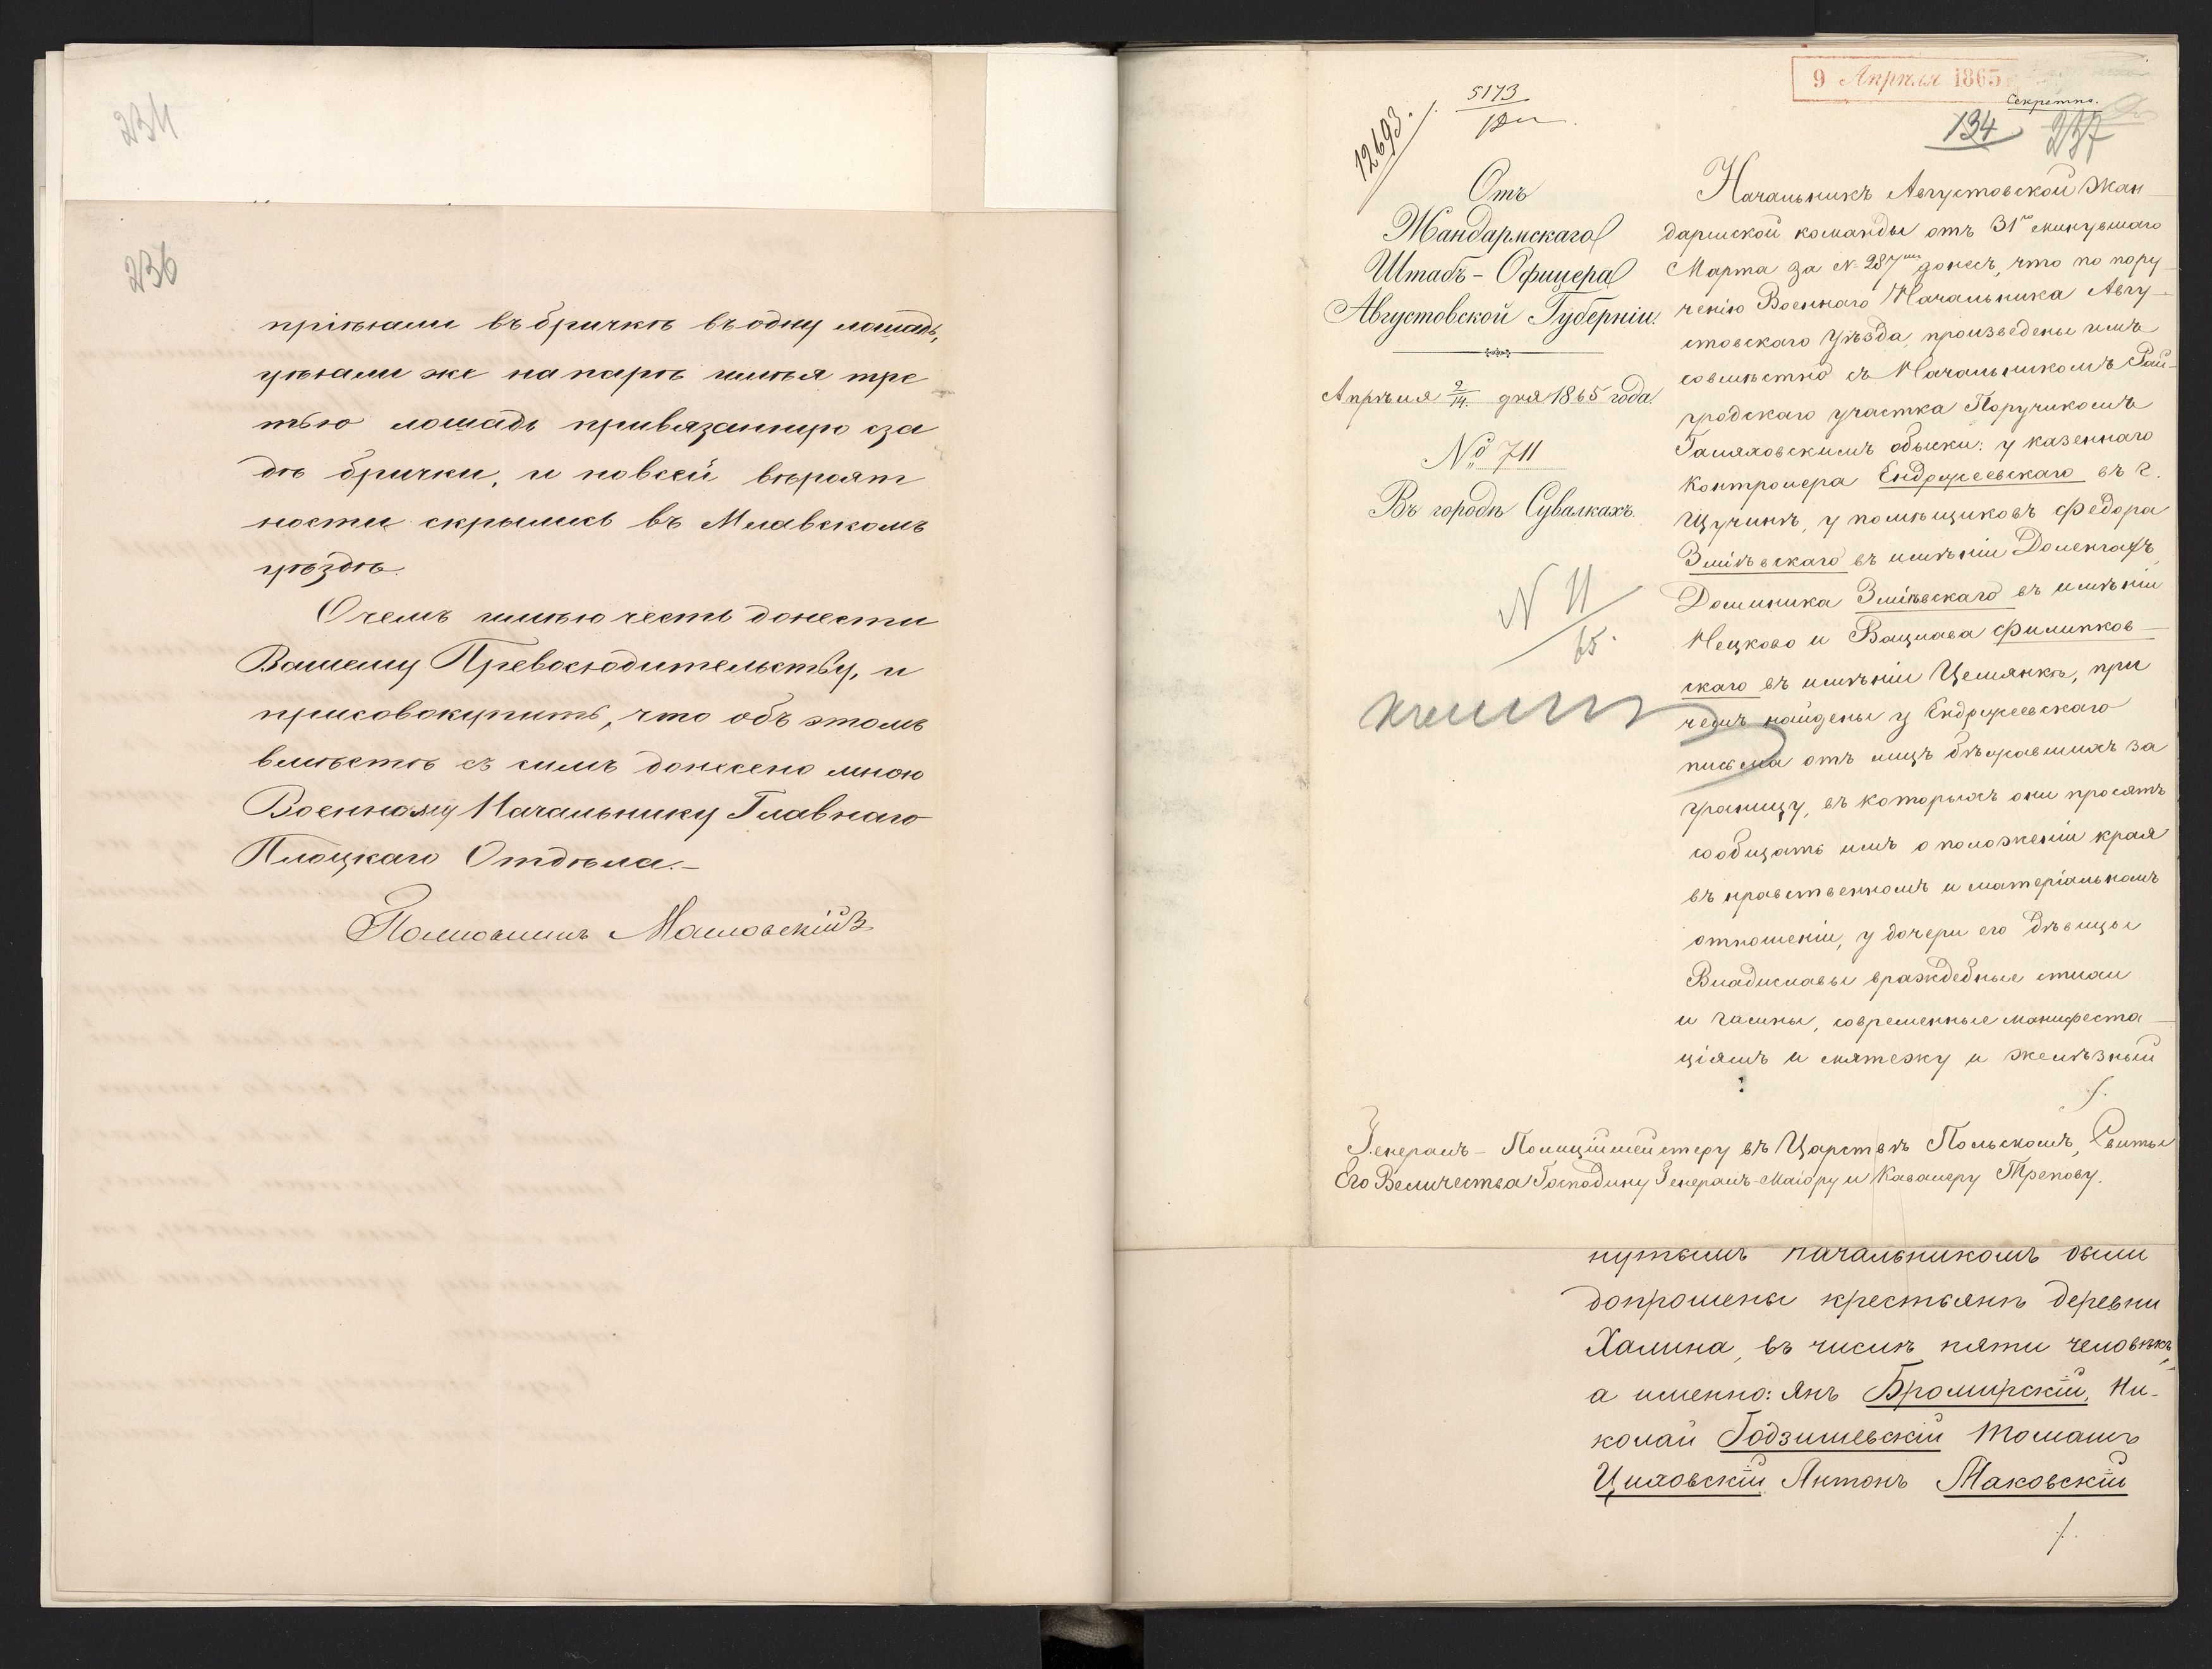 234
236
пріѣхали въ бричкѣ въ одну лошадь,
уѣхали же на парѣ имѣя тре
тью лошадь привязанную сза
дѣ брички, и по всей вѣроят
ности скрылись въ Млавскомъ
уѣздѣ.
О чемъ имѣю честь донести
Вашему Превосходительству, и
присовокупить, что объ этомъ
вмѣстѣ съ симъ донесено мною
Военному Начальнику Главнаго
Плоцкаго Отдѣла.—
Полковникъ Масловскій
9 Апрѣля 1865
Секретно.
134 237
12693.
5173
Отъ
Жандармскаго
Штабъ-Офицера
Августовской Губерніи.
Апрѣля 2/14. дня 1865 года.
№ 711
Въ городѣ Сувалкахъ.
N 11
65.
Начальникъ Августовской Жан
дармской команды отъ 31го минувшаго
Марта за № 287мъ донесъ, что по пору
ченію Военнаго Начальника Авгу-
стовскаго Уѣзда, произведены имъ
совмѣстно съ Начальникомъ Рай-
гродскаго участка Поручикомъ
обыски: у казеннаго
контролера Ендржеевскаго въ г.
Щучинѣ, у помѣщиковъ Федора
Зміѣвскаго въ имѣніи
Доминика Зміѣвскаго въ имѣніи
Нецково и Вацлава Филипков-
скаго въ имѣніи Цемянкѣ, при
чемъ найдены у Ендржеевскаго
письма отъ лицъ бѣжавшихъ за
границу, въ которыхъ они просятъ
сообщать имъ о положеніи края
въ нравственномъ и матеріальномъ
отношеніи, у дочери его дѣвицы
Владиславы враждебные стихи
и гимны, современные манифеста
ціямъ и мятежу и желѣзный
Генералъ-Полиціймейстеру въ Царствѣ Польскомъ, Свиты
Его Величества Господину Генералъ-Маіору и Кавалеру Трепову.
нутымъ Начальникомъ были
допрошены крестьянъ деревни
Халина, въ числѣ пяти человѣкъ,
а именно: Янъ Бромирскій, Ни-
колай Годзишевскій Томашъ
Цихловскій, Антонъ Маковскій